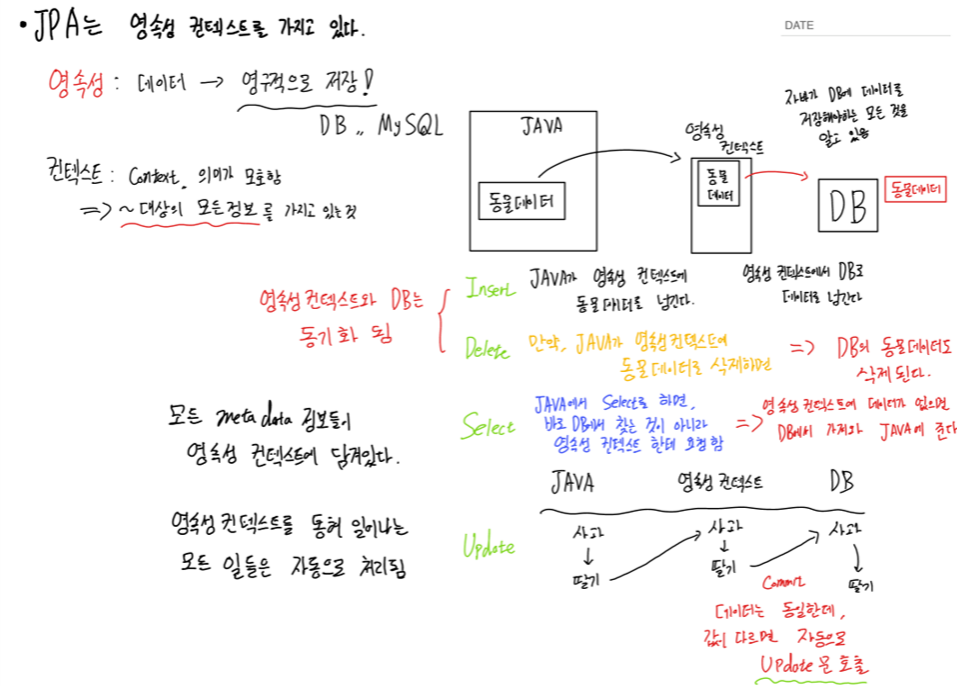 • JPA는 영속성 컨텍스트를 가지고 있다.
DATE
영속성 : 데이터 → 영구적으로 저장!
DB,, MySQL
컨텍스트 : Context, 의미가 모호함
=> ~대상의 모든정보를 가지고 있는 것
JAVA
동물데이터
영속성
컨텍스트
동물
데이터
자바가 DB에 데이터를
저장해야하는 모든 것을
알고 있음
DB
동물데이터
영속성 컨텍스트와 DB는
동기화 됨
Insert
JAVA가 영속성 컨텍스트에
동물데이터를 넘긴다.
영속성 컨텍스트에서 DB로
데이터를 넘긴다
Delete
만약, JAVA가 영속성컨텍스트에
동물데이터를 삭제하면
=> DB의 동물데이터도
삭제된다.
Select
JAVA에서 Select를 하면,
바로 DB에서 찾는 것이 아니라
영속성 컨텍스트 한테 요청함
=> 영속성 컨텍스트에 데이터가 없으면
DB에서 가져와 JAVA에 준다
모든 meta data 정보들이
영속성 컨텍스트에 담겨있다.
영속성 컨텍스트를 통해 일어나는
모든 일들은 자동으로 처리됨
Update
JAVA 영속성 컨텍스트 DB
사과 사과 사과
↓ ↓ ↓
딸기 딸기 딸기
Commit
데이터는 동일한데,
값이 다르면 자동으로
Update문 호출